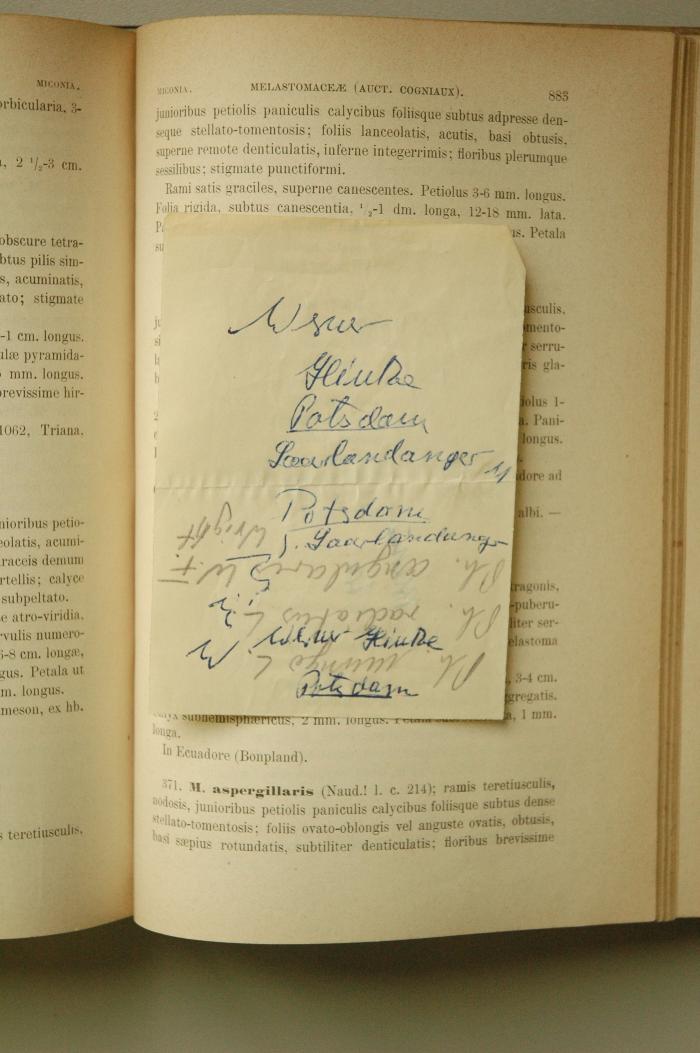 MICONIA.
orbicularia, 3-
, 2 1/2-3 cm.
obscure tetra-
btus pilis sim-
s, acuminatis,
ato; stigmate
-1 cm. longus.
ulæ pyramida-
mm. longus.
brevissime hir-
1062, Triana,
nioribus petio-
eolatis, acumi-
raceis demum
rtellis; calyce
subpeltato.
e atro-viridia.
rvulis numero-
6-8 cm. longæ,
gus. Petala ut
m. longus.
meson, ex hb.
s teretiusculis,
MICONIA. MELASTOMACEÆ (AUCT. COGNIAUX). 883
junioribus petiolis paniculis calycibus foliisque subtus adpresse den-
seque stellato-tomentosis; foliis lanceolatis, acutis, basi obtusis,
superne remote denticulatis, inferne integerrimis; floribus plerumque
sessilibus; stigmate punctiformi.
Rami satis graciles, superne canescentes. Petiolus 3-6 mm. longus.
Folia rigida, subtus canescentia, 1/2-1 dm. longa, 12-18 mm. lata.
us. Petala
usculis,
mento-
serru-
ris gla-
iolus 1-
a. Pani-
longus.
dore ad
albi. —
tragonis,
-puberu-
liter ser-
elastoma
, 3-4 cm.
gregatis.
Potsdam
Saarlandanger
Potsdam
J. Saarlandanger
Ph. angularis W.F. Wight
Ph. radiatus L.
Ph. mungo L.
Potsdam
calyx subhemisphæricus, 2 mm. longus. a, 1 mm.
longa.
In Ecuadore (Bonpland).
371. M. aspergillaris (Naud.! l. c. 214); ramis teretiusculis,
nodosis, junioribus petiolis paniculis calycibus foliisque subtus dense
stellato-tomentosis; foliis ovato-oblongis vel anguste ovatis, obtusis,
basi sæpius rotundatis, subtiliter denticulatis; floribus brevissime